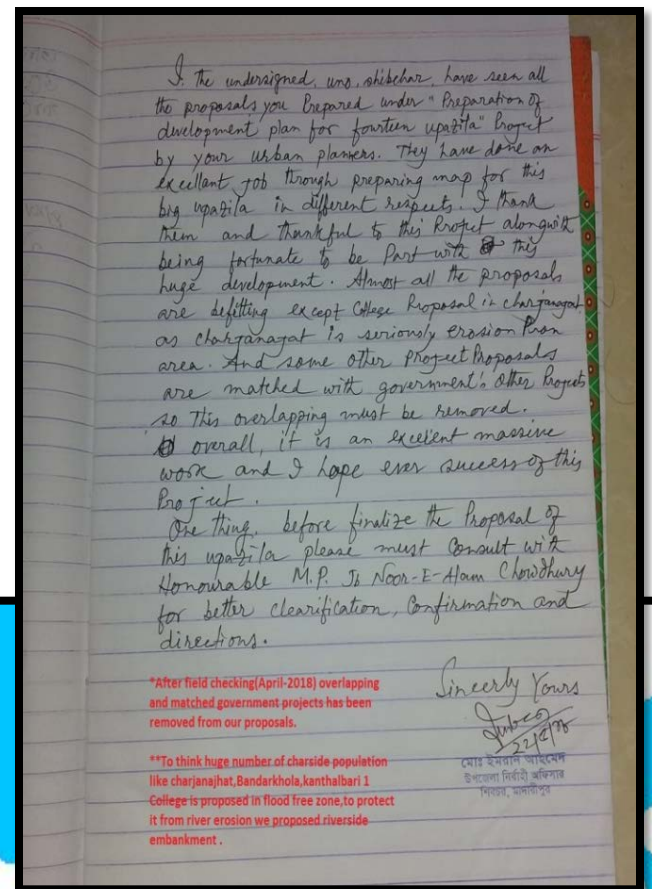 I. the undersigned, uno, shibchar, have seen all
the proposals you Prepared under "Preparation of
development plan for fourteen upazila" Project
by your urban planners. They have done an
excellant job through preparing map for this
big upazila in different respects. I thank
them and thankful to this Project alongwith
being fortunate to be Part with this
huge development. Almost all the proposals
are befitting except College Proposal in charjanajat
as charjanajat is seriously erosion Pron
area. And some other project Proposals
are matched with government's other Projects
so this overlapping must be removed.
overall, it is an excelent massive
work and I hope ever success of this
Project.
One thing, before finalize the Proposal of
this upazila please must Consult with
Honourable M.P. Jb Noor-E-Alam Chowdhury
for better clearification, Confirmation and
directions.
Sincerly Yours
*After field checking(April-2018) overlapping
and matched government projects has been
removed from our proposals.
**To think huge number of charside population
like charjanajhat,Bandarkhola,kanthalbari 1
College is proposed in flood free zone,to protect
it from river erosion we proposed riverside
embankment .
মোঃ ইমরান আহমেদ
উপজেলা নির্বাহী অফিসার
শিবচর, মাদারীপুর